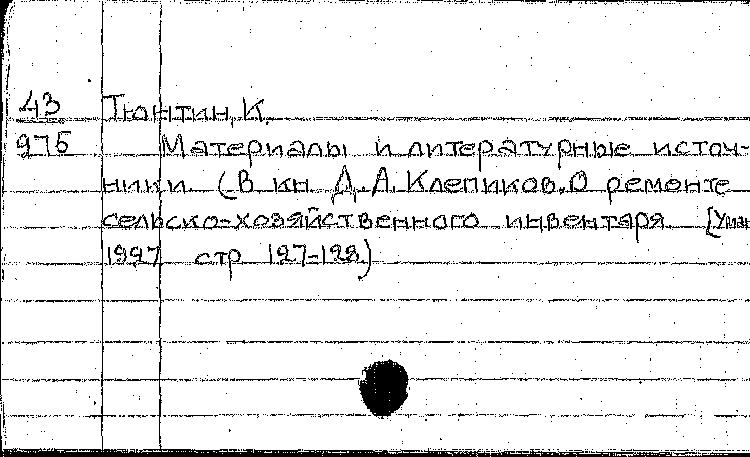 43
975
Тюнтин, К.
Материалы и литературные источ-
ники. (В кн Д. А. Клепиков. О ремонте
сельско-хозяйственного инвентаря. [Уман
1927 стр 127-128.)